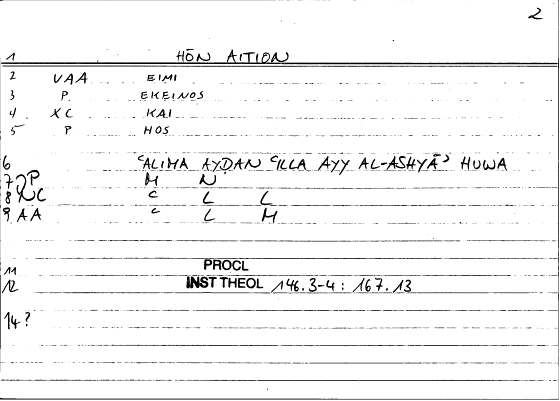 2
1 HŌN AITION
2 VAA EIMI
3 P. EKEINOS
4 XC KAI
5 P HOS
6 ʿALIMA AYḌAN ʿILLA AYY AL-ASHYĀʾ HUWA
7 P M N
8 NC C L L
9 AA C L M
11 PROCL
12 INST THEOL 146.3-4: 167.13
14?